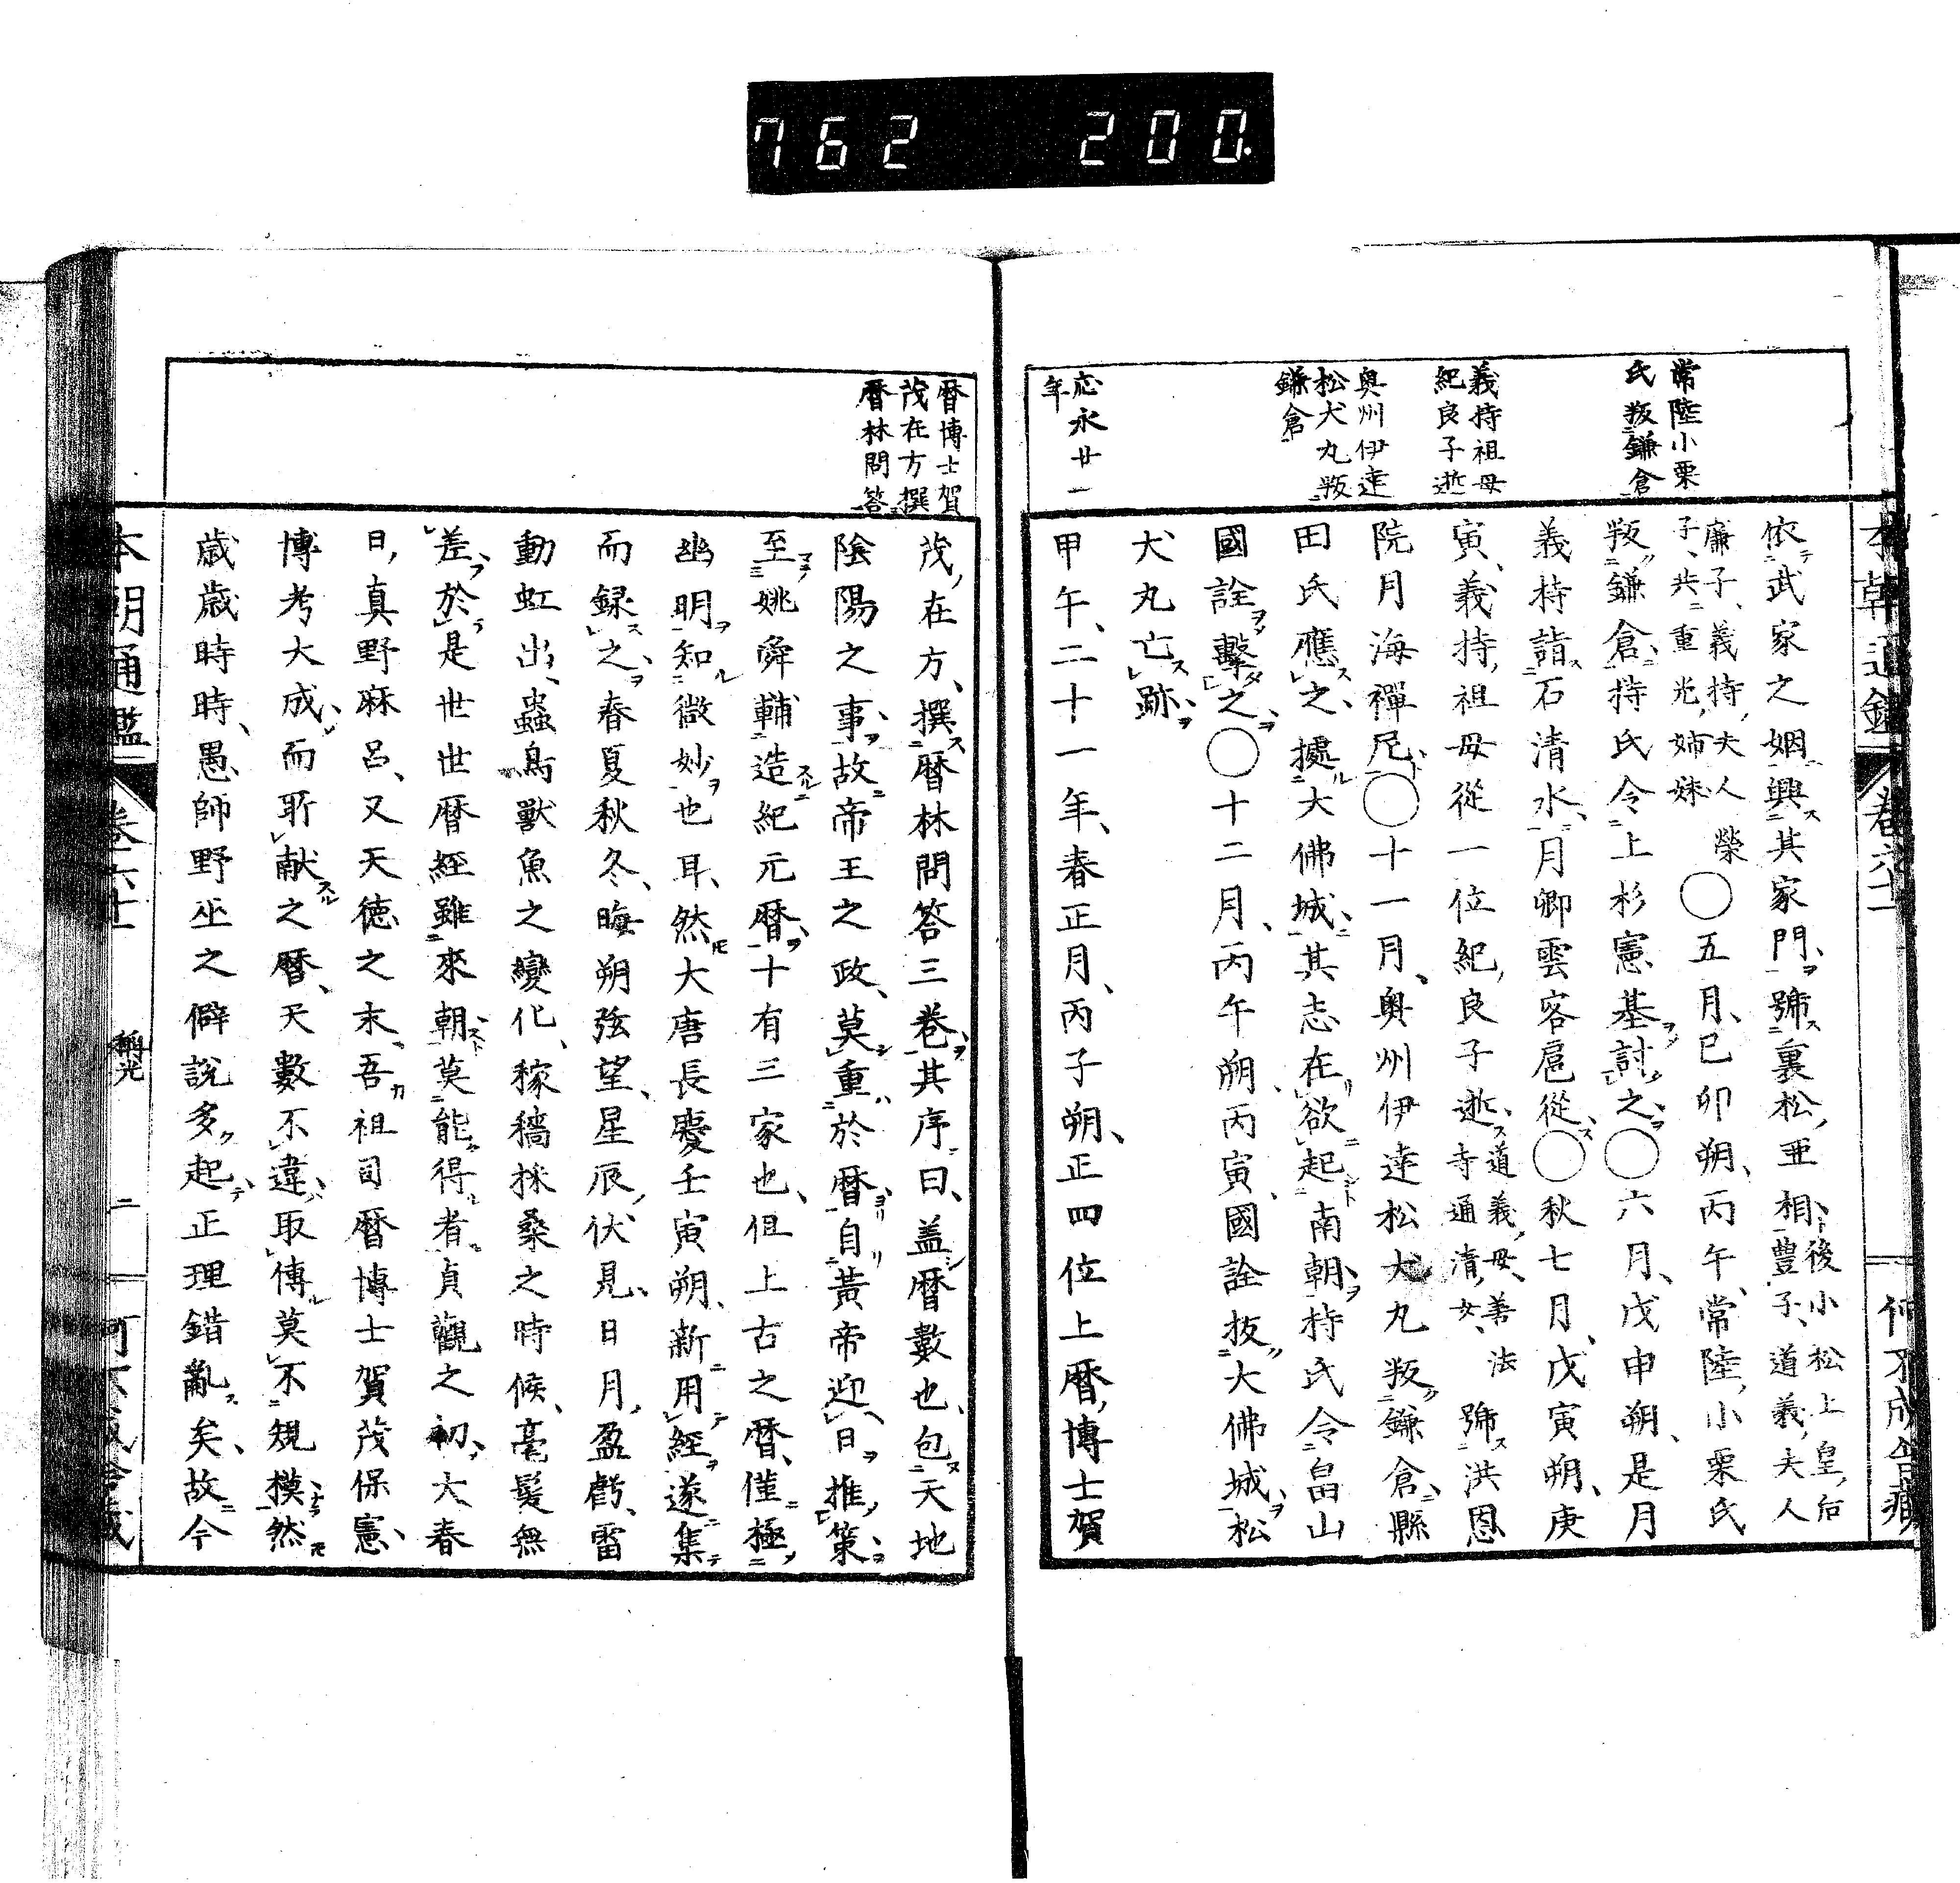 762 200.
本朝通鑑 卷六十二 何不成舍藏
常陸小栗
氏叛鎌倉
義持祖母
紀良子逝
奥州伊達
松犬丸叛
鎌倉
応永廿一
年
依武家之姻興其家門號裏松亜相豊子道義夫人後小松上皇后
廉子義持夫人榮
子共重光姉妹
○五月己卯朔丙午常陸小栗氏
叛鎌倉持氏令上杉憲基討之○六月戊申朔是月
義持詣石清水月卿雲客扈從○秋七月戊寅朔庚
寅義持祖母從一位紀良子逝道義母善法寺通清女號洪恩
院月海禪尼○十一月奥州伊達松犬丸叛鎌倉縣
田氏應之據大佛城其志在欲起南朝持氏令畠山
國詮擊之○十二月丙午朔丙寅國詮拔大佛城松
犬丸亡跡
甲午二十一年春正月丙子朔正四位上暦博士賀
暦博士賀
茂在方撰
暦林問答
茂在方撰暦林問答三卷其序曰盖暦數也包天地
陰陽之事故帝王之政莫重於暦自黃帝迎日推策
至姚舜輔造紀元暦十有三家也但上古之暦僅極
幽明知微妙也耳然大唐長慶壬寅朔新用經遂集
而録之春夏秋冬晦朔弦望星辰伏見日月盈虧雷
動虹出蟲鳥獸魚之變化稼穡採桑之時候毫髮無
差於是世世暦經雖來朝莫能得者貞觀之初大春
日真野麻呂又天徳之末吾祖司暦博士賀茂保憲
博考大成而所献之暦天數不違取傳莫不規模然
歳歳時時愚師野巫之僻説多起正理錯亂矣故今
本朝通鑑 卷六十二 稱光 二